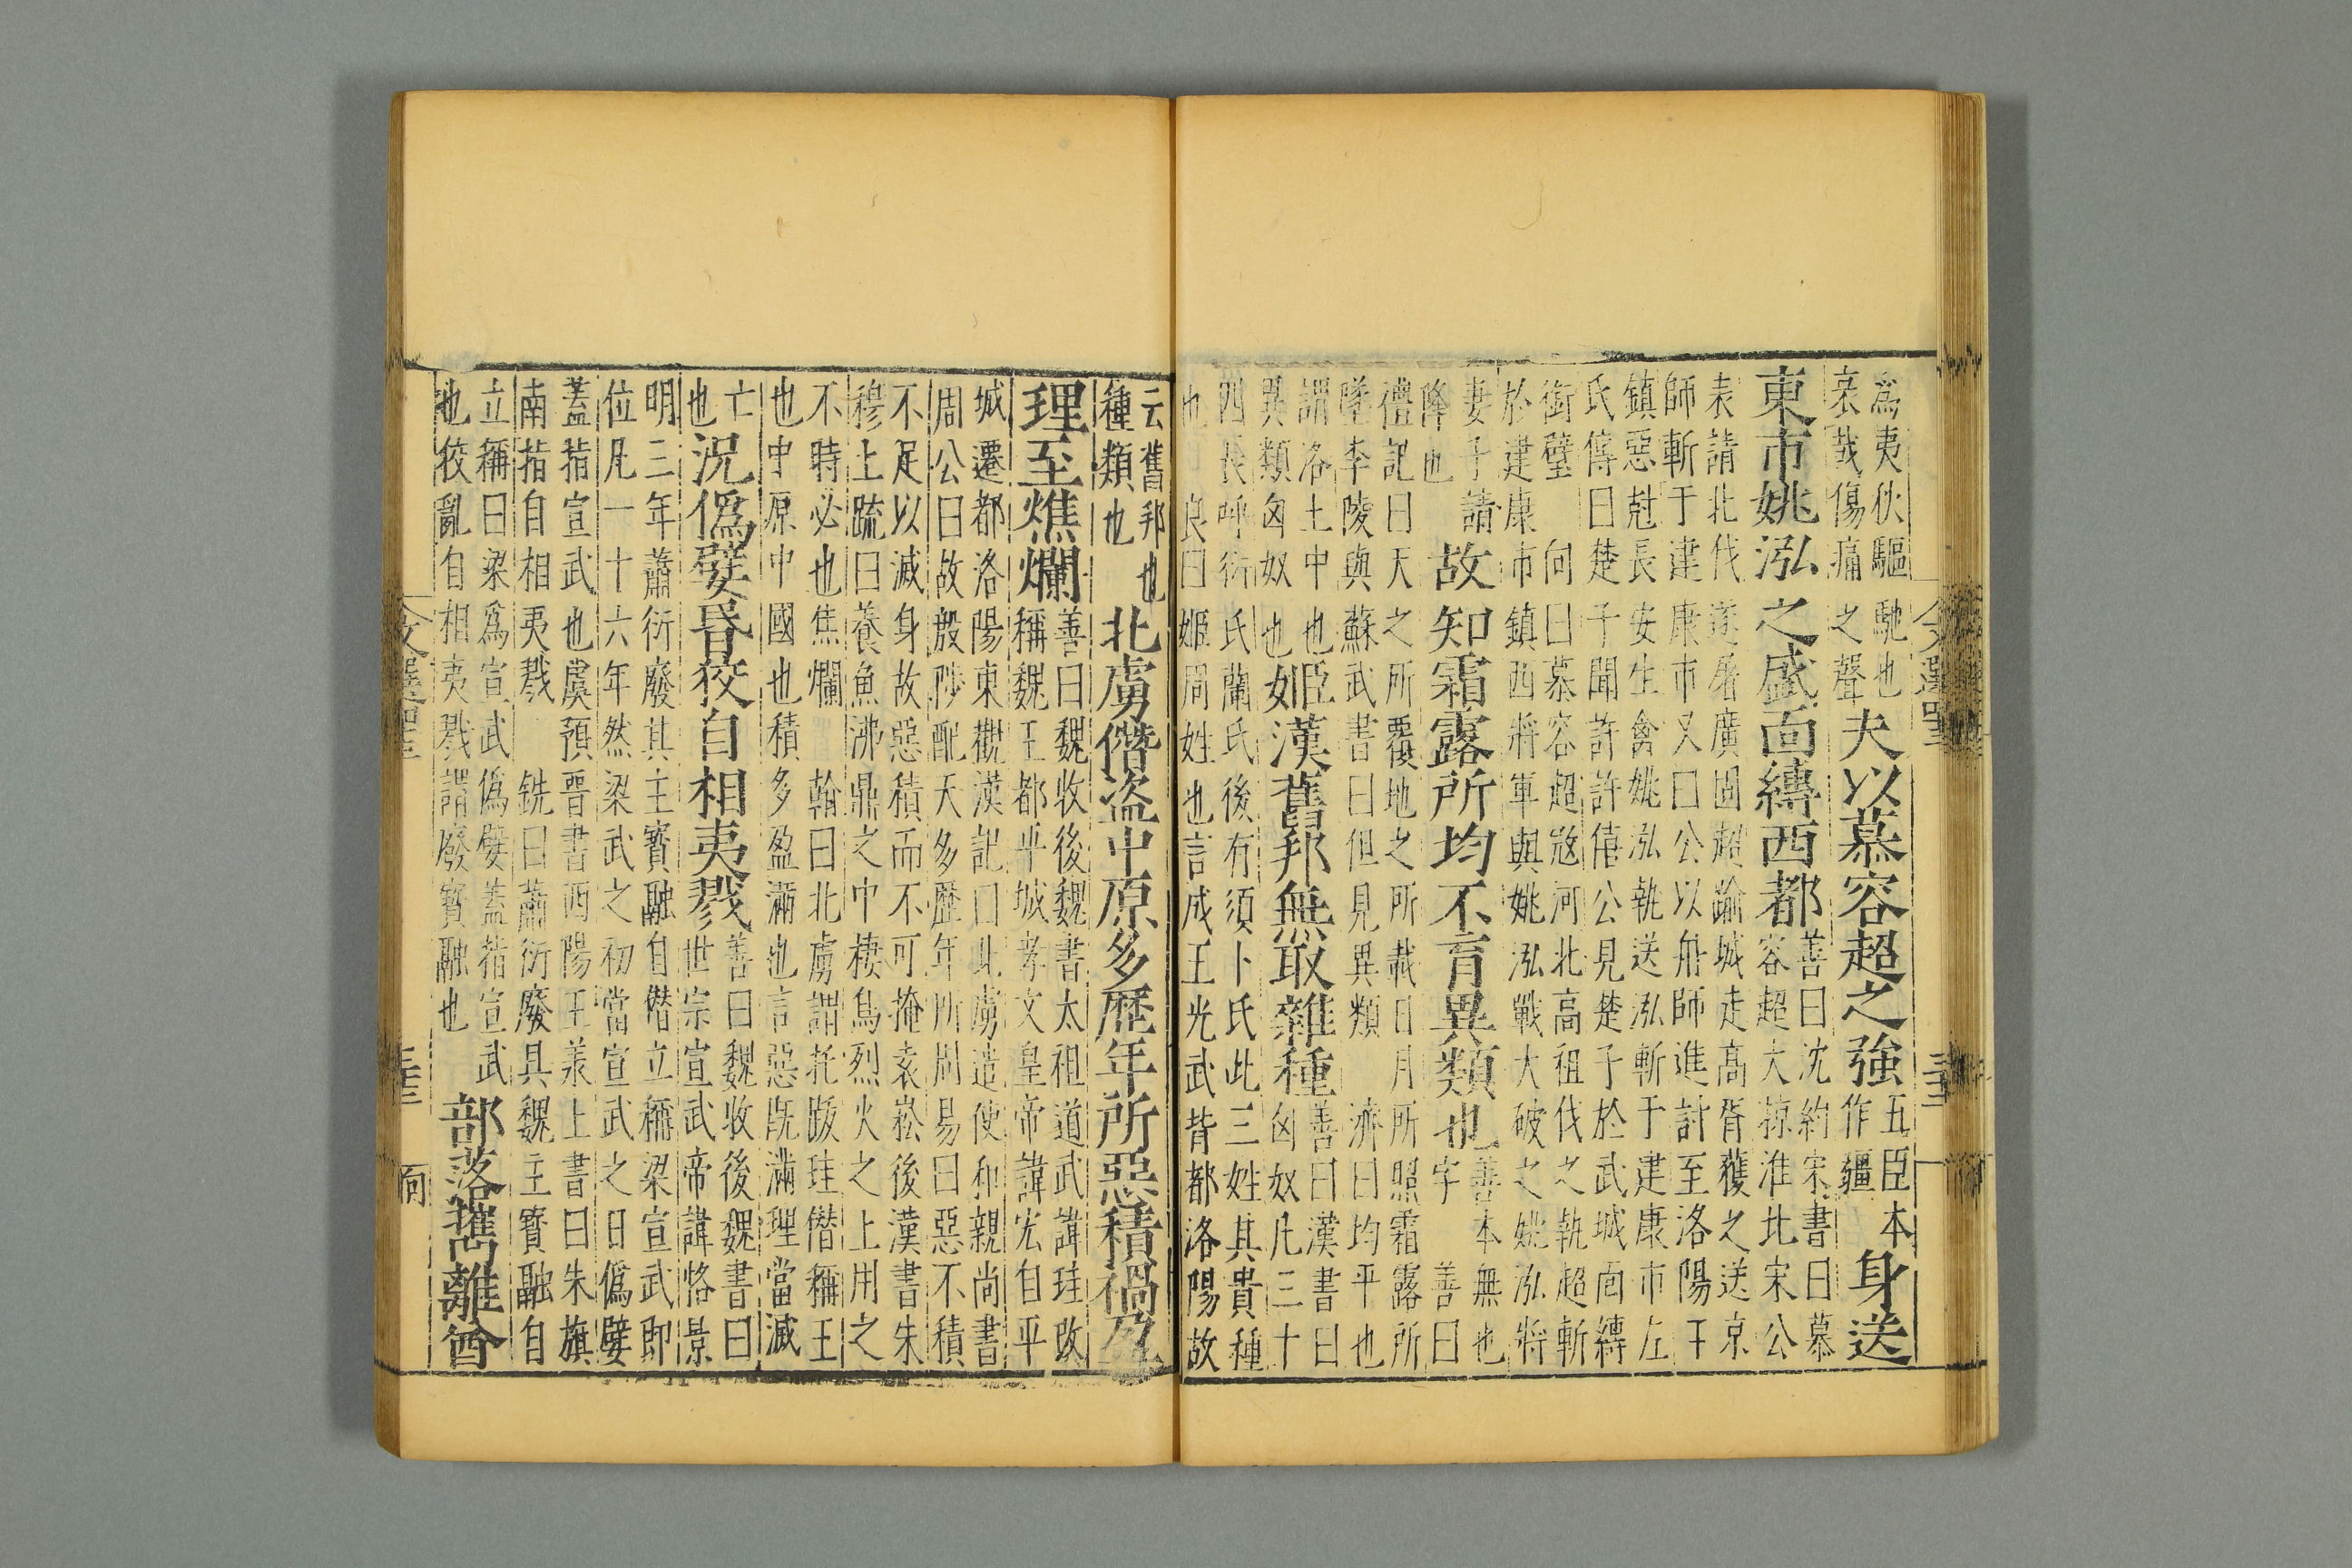 爲夷狄驅馳也
哀哉傷痛之聲夫以慕容超之強五臣本作疆身送
東市姚泓之盛面縛西都善曰沈約宋書曰慕容超大掠淮北宋公
表請北伐遂屠廣固超踰城走高胥獲之送京
師斬于建康市又曰公以舟師進討至洛陽王
鎮惡尅長安生禽姚泓執送泓斬于建康市左
氏傳曰楚子聞許許僖公見楚子於武城面縛
銜璧 向曰慕容超寇河北高祖伐之執超斬
於建康市鎮西將軍與姚泓戰大破之姚泓將
妻子請
降也故知霜露所均不育異類也善本無也字 善曰
禮記曰天之所覆地之所載日月所照霜露所
墜李陵與蘇武書曰但見異類 濟曰均平也
謂洛土中也
異類匈奴也姬漢舊邦無取雜種善曰漢書曰匈奴凡三十
四長呼衍氏蘭氏後有須卜氏此三姓其貴種
也 良曰姬周姓也言成王光武皆都洛陽故
云舊邦也
種類也北虜僭盗中原多歷年所惡積禍盈
理至燋爛善曰魏收後魏書太祖道武諱珪改稱魏王都平城孝文皇帝諱宏自平
城遷都洛陽東觀漢記曰北虜遣使和親尚書
周公曰故殷陟配天多歷年所周易曰惡不積
不足以滅身故惡積而不可掩袁崧後漢書朱
穆上疏曰養魚沸鼎之中棲鳥烈火之上用之
不時必也焦爛 翰曰北虜謂托跋珪僭稱王
也中原中國也積多盈滿也言惡旣滿理當滅
亡
也況僞孼昏狡自相夷戮善曰魏收後魏書曰世宗宣武帝諱恪景
明三年蕭衍廢其主寶融自僭立稱梁宣武即
位凡一十六年然梁武之初當宣武之日僞孼
蓋指宣武也虞預晉書西陽王羕上書曰朱旗
南指自相夷戮 銑曰蕭衍廢具魏主寶融自
立稱曰梁爲宣武僞孼蓋指宣武
也狡亂自相夷戮謂廢寶融也部落攜離酋